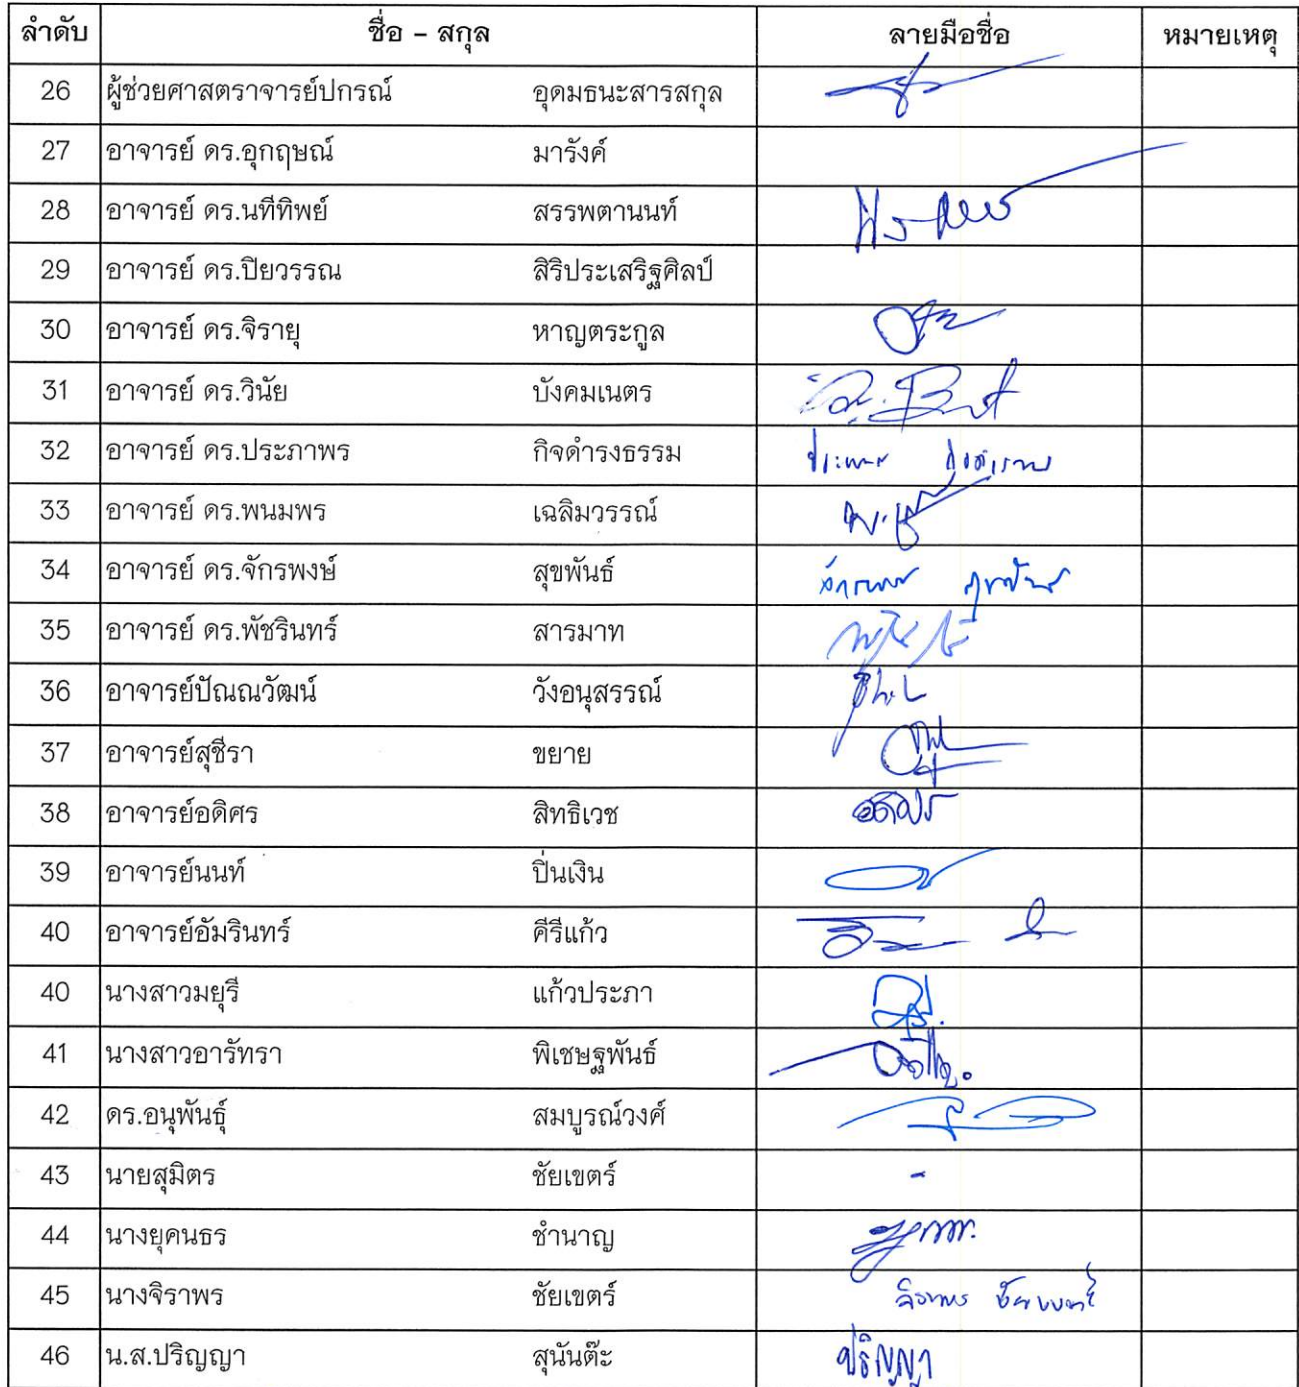 ลำดับ ชื่อ - สกุล ลายมือชื่อ หมายเหตุ
26 ผู้ช่วยศาสตราจารย์ปกรณ์ อุดมธนะสารสกุล
27 อาจารย์ ดร.อุกฤษณ์ มารังค์
28 อาจารย์ ดร.นทีทิพย์ สรรพตานนท์
29 อาจารย์ ดร.ปิยวรรณ สิริประเสริฐศิลป์
30 อาจารย์ ดร.จิรายุ หาญตระกูล
31 อาจารย์ ดร.วินัย บังคมเนตร
32 อาจารย์ ดร.ประภาพร กิจดำรงธรรม
33 อาจารย์ ดร.พนมพร เฉลิมวรรณ์
34 อาจารย์ ดร.จักรพงษ์ สุขพันธ์
35 อาจารย์ ดร.พัชรินทร์ สารมาท
36 อาจารย์ปัณณวัฒน์ วังอนุสรรณ์
37 อาจารย์สุชีรา ขยาย
38 อาจารย์อดิศร สิทธิเวช
39 อาจารย์นนท์ ปิ่นเงิน
40 อาจารย์อัมรินทร์ คีรีแก้ว
40 นางสาวมยุรี แก้วประภา
41 นางสาวอารัทรา พิเชษฐพันธ์
42 ดร.อนุพันธุ์ สมบูรณ์วงศ์
43 นายสุมิตร ชัยเขตร์ -
44 นางยุคนธร ชำนาญ
45 นางจิราพร ชัยเขตร์ จิราพร ชัยเขตร์
46 น.ส.ปริญญา สุนันต๊ะ ปริญญา